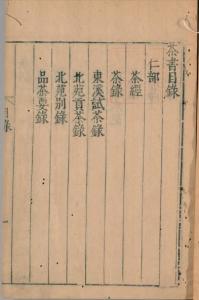 茶書目錄
仁部
茶經
茶錄
東溪試茶錄
北苑貢茶錄
北苑別錄
品茶要錄
目錄
一